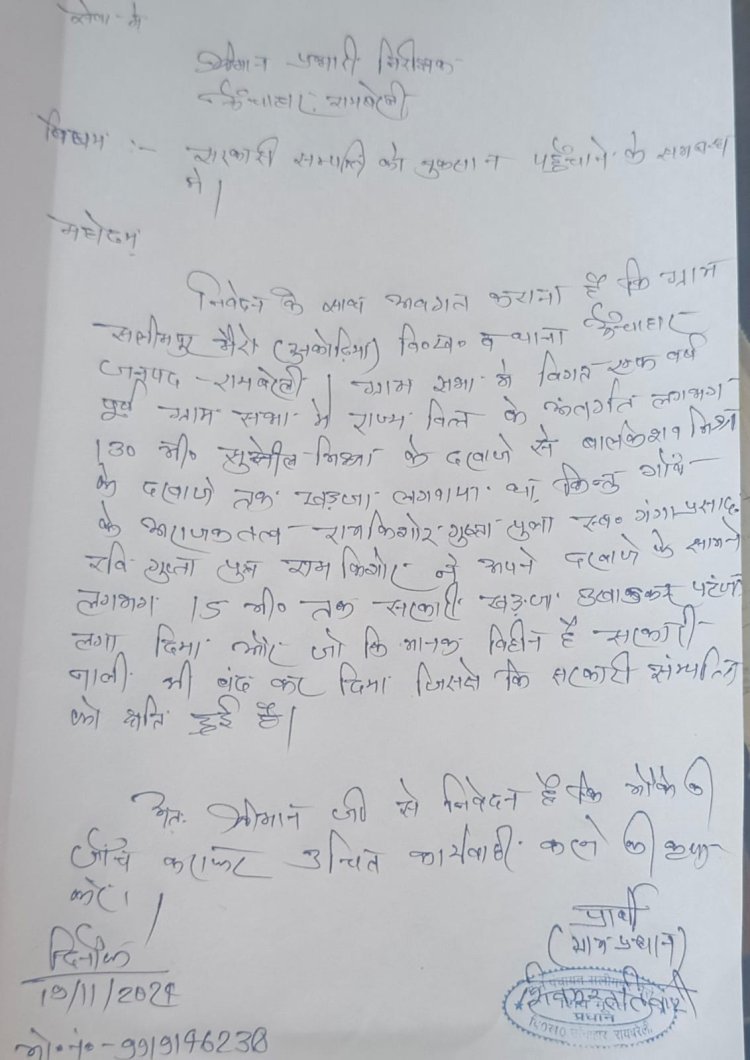 सेवा में
श्रीमान प्रभारी निरीक्षक
ऊँचाहार, रायबरेली
विषय :- सरकारी सम्पत्ति को नुकसान पहुँचाने के सम्बन्ध
में।
महोदय
निवेदन के साथ अवगत कराना है कि ग्राम
सलीमपुर भैरो वि०ख० व थाना ऊँचाहार
जनपद - रायबरेली। ग्राम सभा में विगत एक वर्ष
पूर्व ग्राम सभा में राज्य वित्त के अंतर्गत लगभग
130 मी० सुशील मिश्रा के दरवाजे से बालकेशन मिश्रा
के दरवाजे तक खड़ंजा लगवाया था, किन्तु गाँव
के अराजकतत्व - रामकिशोर गुप्ता पुत्र स्व० गंगा प्रसाद
रवि गुप्ता पुत्र राम किशोर ने अपने दरवाजे के सामने
लगभग 15 मी० तक सरकारी खड़ंजा उखाड़कर
लगा दिया और जो कि मानक विहीन है सरकारी
नाली भी बंद कर दिया जिससे कि सरकारी संम्पत्ति
को क्षति हुई है।
अतः श्रीमान जी से निवेदन है कि मौके की
जाँच कराकर उचित कार्यवाही करने की कृपा
करें।
प्रार्थी
(ग्राम प्रधान)
दिनाँक
19/11/2024
प्रधान
मो०नं० - 9919146238